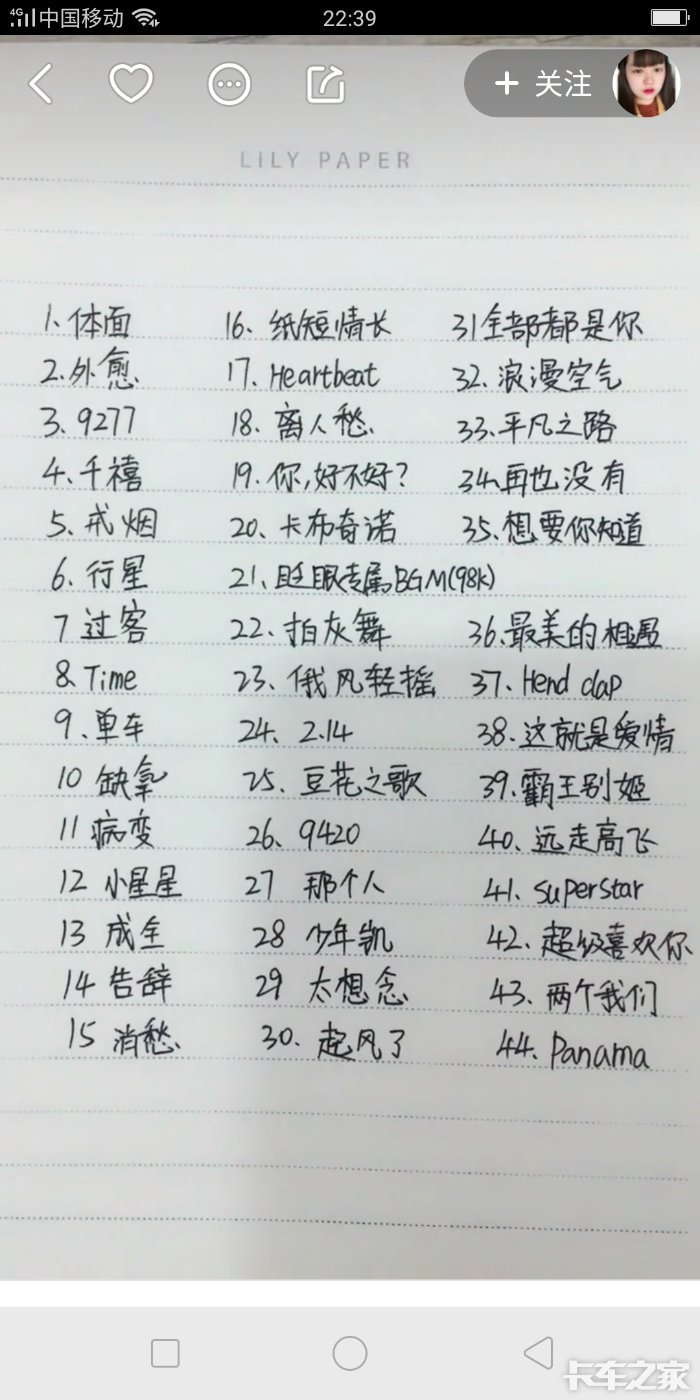 4G 中国移动 22:39
+ 关注
LILY PAPER
1、体面 16、纸短情长 31全部都是你
2.外愈 17. Heartbeat 32.浪漫空气
3、9277 18.离人愁. 33.平凡之路
4.千禧 19.你,好不好? 34.再也没有
5、戒烟 20、卡布奇诺 35.想要你知道
6.行星 21、睡眠专属BGM(98k)
7 过客 22.拍灰舞 36.最美的相遇
8. Time 23.俄风轻摇 37. Hend clap
9.单车 24. 2.14 38.这就是爱情
10 缺氧 25、豆花之歌 39.霸王别姬
11 病变 26、9420 40、远走高飞
12 小星星 27 那个人 41. superstar
13 成全 28 少年凯 42.超级喜欢你
14 告辞 29 太想念 43.两个我们
15 消愁. 30.起风了 44. Panama
卡车之家